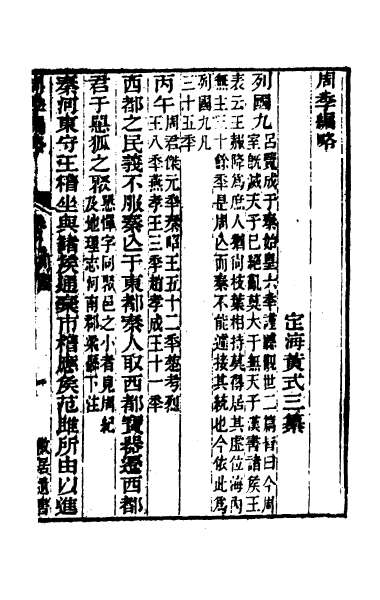 周季編略
定海黃式三纂
列國九
呂覽成于秦始皇六年謹聽觀世二篇皆曰今周
室旣滅天子已絕亂莫大于無天子漢書諸侯王
表云王赧降爲庶人猶尙枝葉相持莫得居其虛位海內
無主三十餘年是周亾而秦不能遽接其統也今依此爲
列國九凡
三十五年
丙午
周君傑元年秦昭王五十二年楚考烈
王八年燕孝王三年趙孝成王十一年
西都之民義不服秦亾于東都秦人取西都寶器遷西都
君于㥾狐之聚
㥾憚字同聚邑之小者見周紀
及地理志河南郡梁縣下注
秦河東守王稽坐與諸侯通棄市稽應侯范雎所由以進
儆居遺書